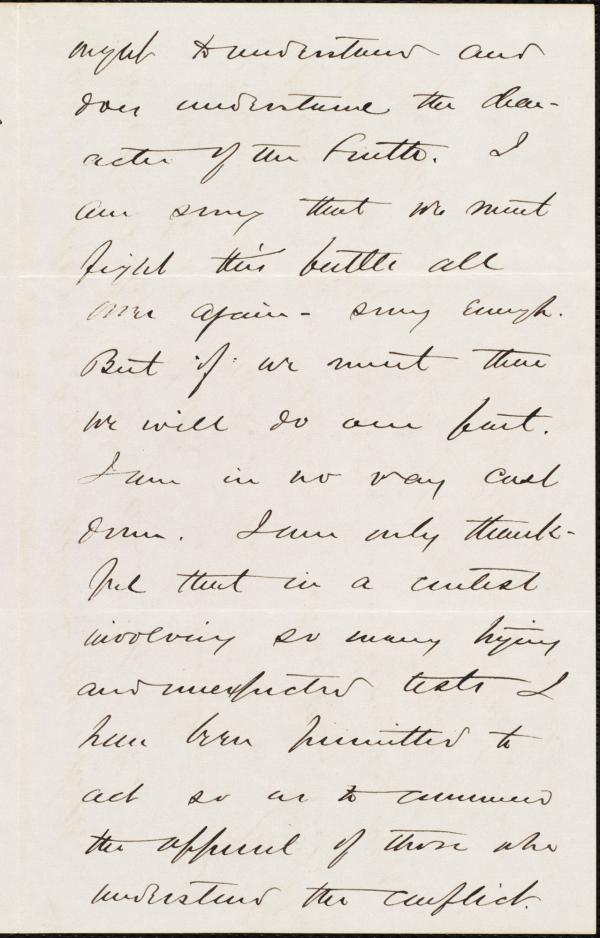 ought to understand and
does understand the char-
acter of the South. I
am sorry that we must
fight this battle all
over again - sorry enough.
But if we must then
we will do our part.
I am in no way cast
down. I am only thank-
ful that in a contest
involving so many trying
and unexpected tests I
have been permitted to
act so as to command
the approval of those who
understand the conflict.